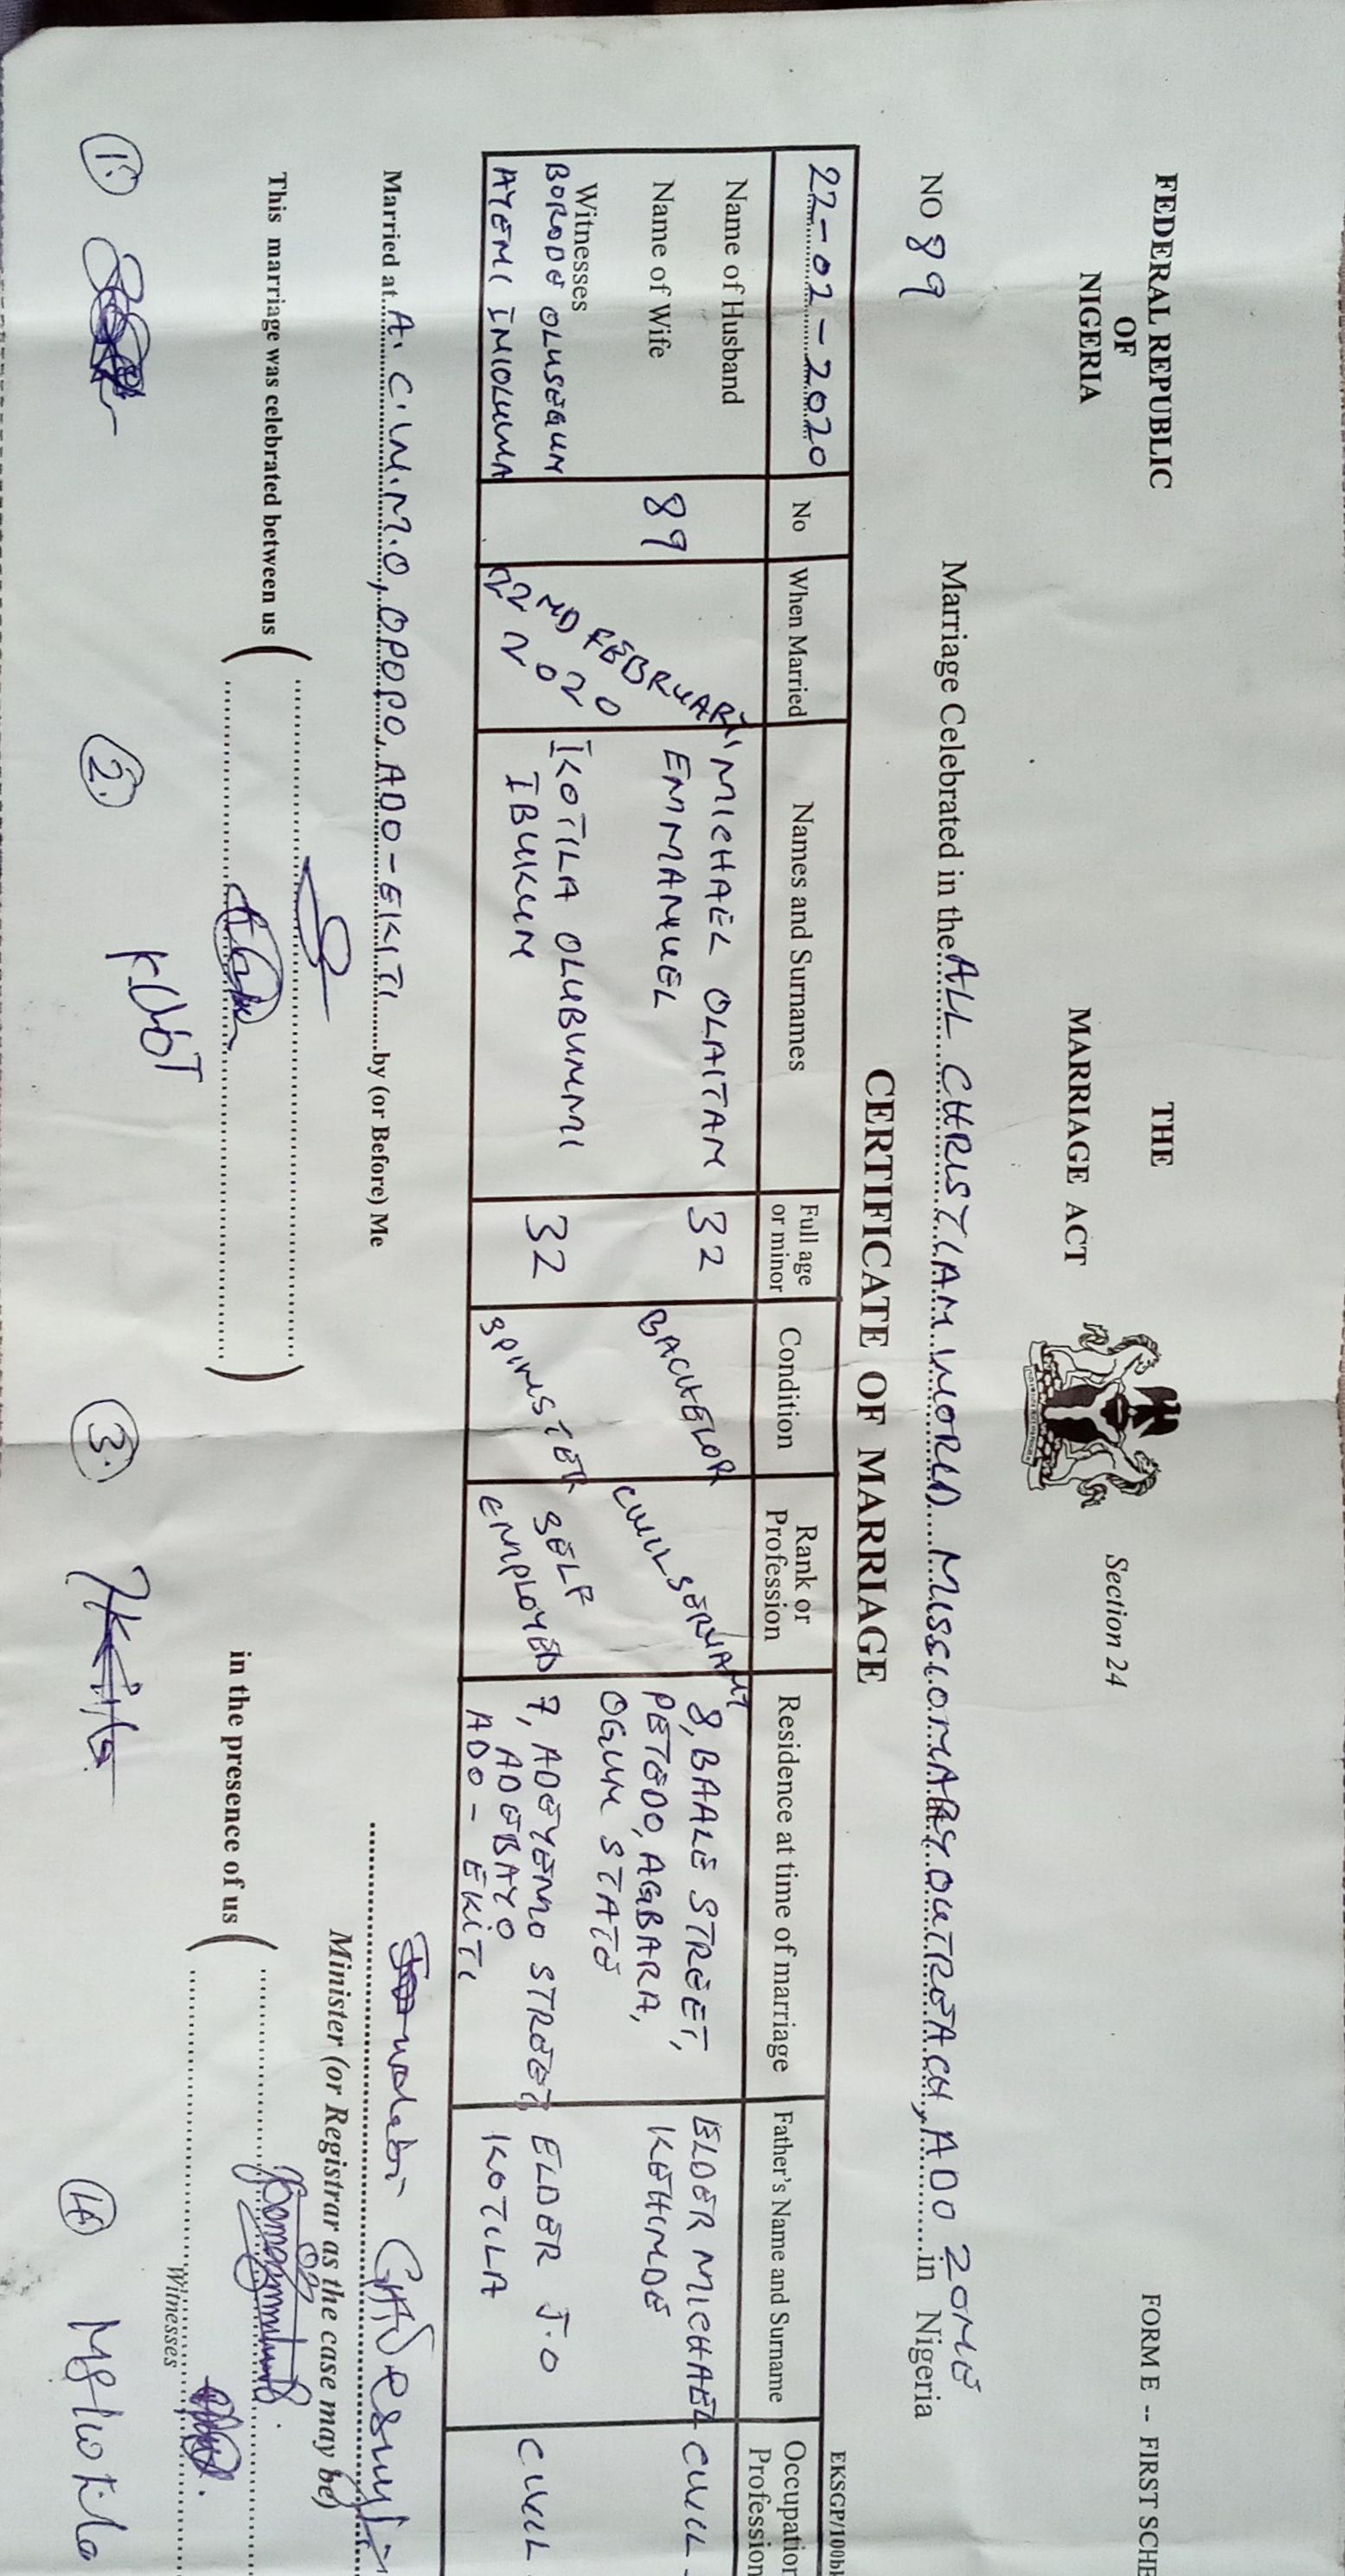 FORM E -- FIRST SCHE
FEDERAL REPUBLIC
OF
NIGERIA
THE
MARRIAGE ACT
Section 24
NO 89
Marriage Celebrated in the ALL CHRISTIAN WORLD MISSIONARY OUTREACH, ADO ZONE in Nigeria
EKSGP/100bk
CERTIFICATE OF MARRIAGE
22-02-2020
No
When Married
Names and Surnames
Full age or minor
Condition
Rank or Profession
Residence at time of marriage
Father's Name and Surname
Occupation
Profession
Name of Husband
MICHAEL OLAITAN
EMMANUEL
32
BACHELOR
CIVIL SERVANT
8, BAALE STREET,
PETEDO, AGBARA,
OGUN STATE
ELDER MICHAEL
KEHINDE
CIVIL
Name of Wife
89
22ND FEBRUARY
2020
IKOTILA OLUBUNMI
IBUKUN
32
SPINSTER
SELF
EMPLOYED
7, ADEYEMO STREET,
ADEBAYO
ADO-EKITI
ELDER J.O
IKOTILA
CIVIL
Witnesses
BORODE OLUSEGUN
AYENI INIOLUWA
Married at A.C.W.M.O, OPOPO, ADO-EKITI by (or Before) Me
Minister (or Registrar as the case may be)
This marriage was celebrated between us
in the presence of us
Witnesses
1.
2.
3.
4.